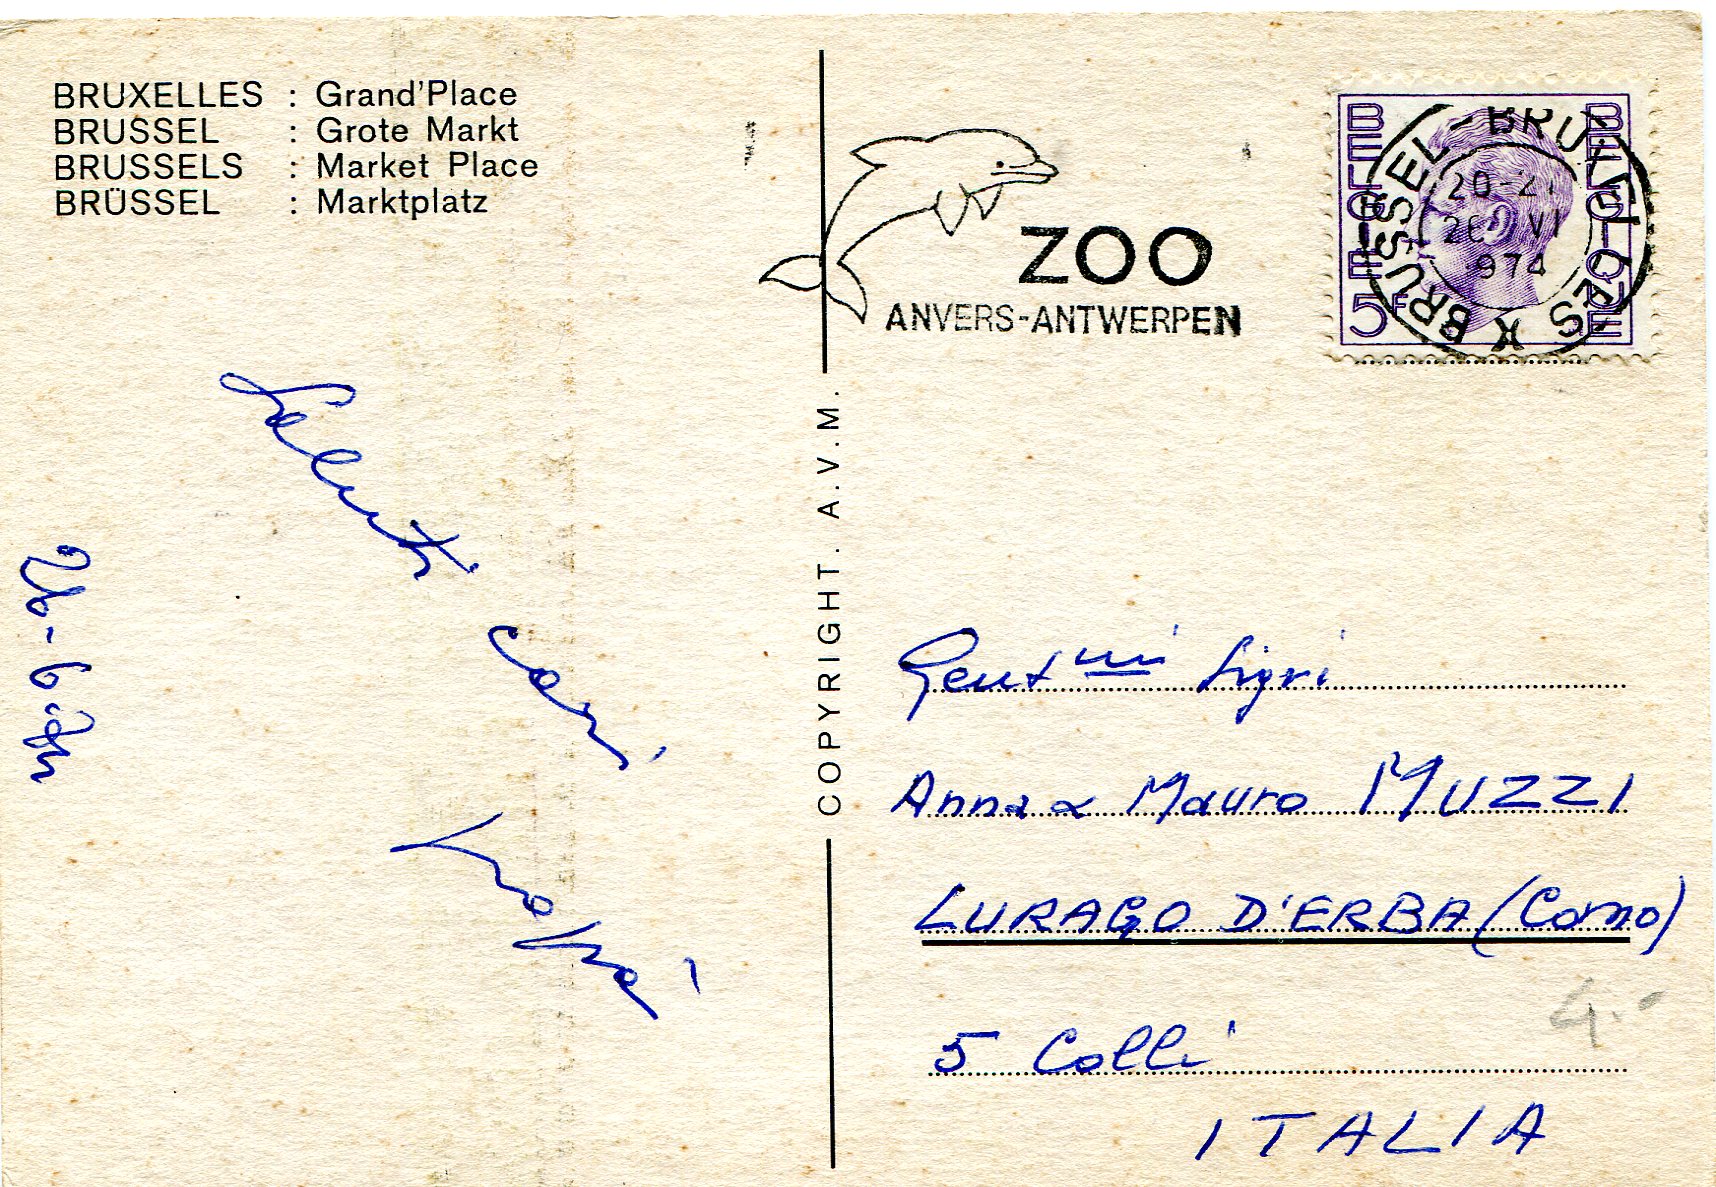 BRUXELLES : Grand'Place
BRUSSEL : Grote Markt
BRUSSELS : Market Place
BRÜSSEL : Marktplatz
ZOO
ANVERS-ANTWERPEN
BELGIE
BELGIQUE
5F
BRUSSEL-BRUXELLES
20-21
VI
974
COPYRIGHT. A.V.M.
Saluti
cari
26-6-74
Gent.mi Sigri
Anna e Mauro MUZZI
LURAGO D'ERBA (Como)
5 Colli
ITALIA
4.-